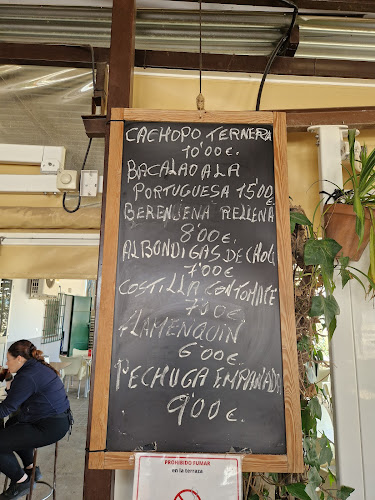 CACHOPO TERNERA
10'00€.
BACALAO A LA
PORTUGUESA 15'00€
BERENJENA RELLENA
8'00€.
ALBONDIGAS DE CHOC
7'00€
COSTILLA CON TOMATE
7'00€
FLAMENQUIN
6'00€
PECHUGA EMPANADA
9'00€.
PROHIBIDO FUMAR
en la terraza